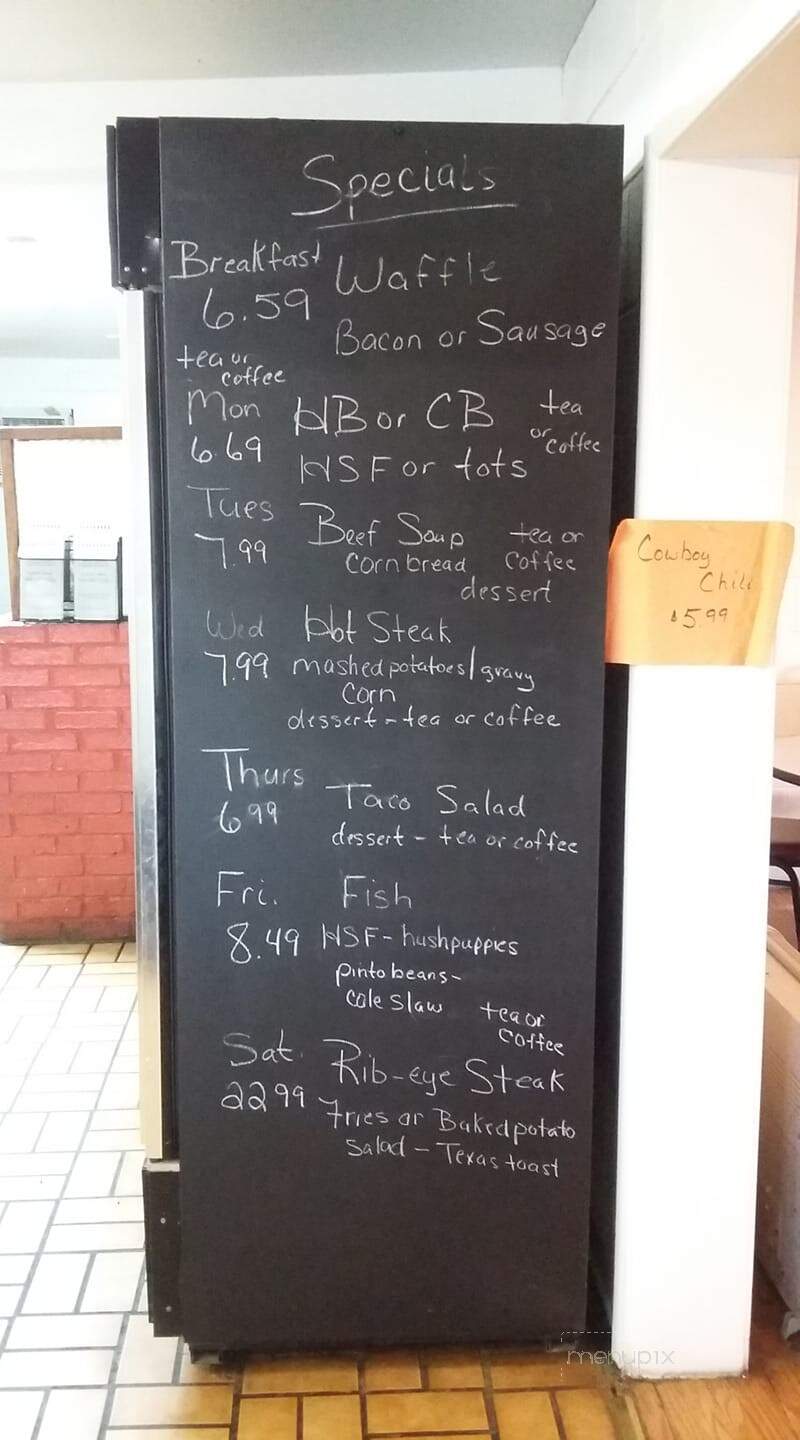 Specials
Breakfast Waffle
6.59
Bacon or Sausage
tea or
coffee
Mon HB or CB tea
or coffee
6.69 HSF or tots
Tues Beef Soup tea or
7.99 Corn bread coffee
dessert
Wed Hot Steak
7.99 mashed potatoes/gravy
Corn
dessert - tea or coffee
Thurs Taco Salad
6.99 dessert - tea or coffee
Fri. Fish
8.49 HSF - hushpuppies
pinto beans -
Cole slaw tea or
coffee
Sat. Rib-eye Steak
22.99 Fries or Baked potato
Salad - Texas toast
Cowboy
Chili
$5.99
menupix